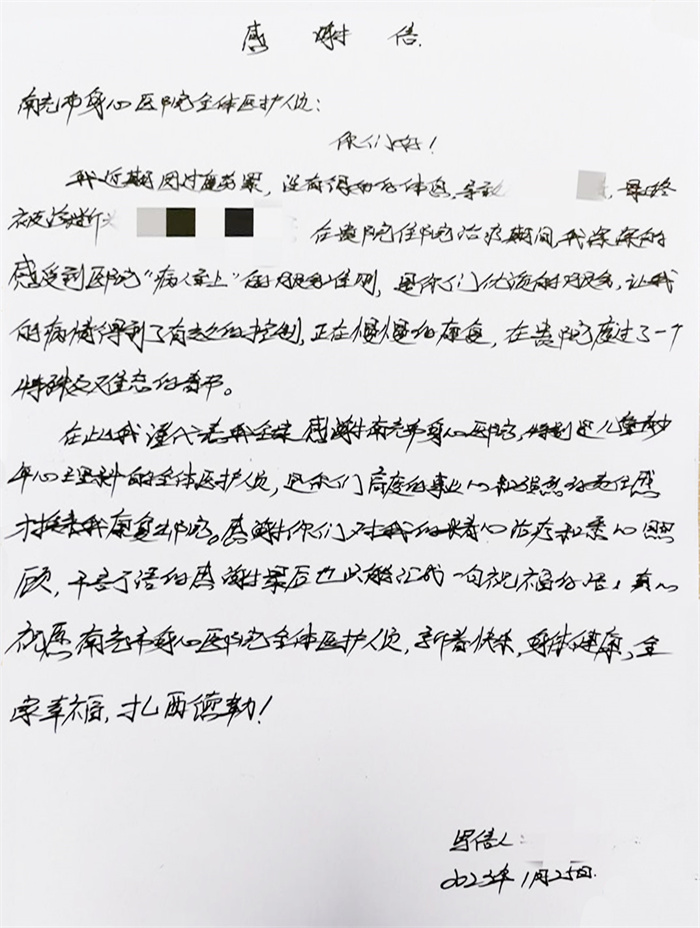 感谢信
南充市身心医院全体医护人员：
你们好！
我近期因过重劳累，没有得到好休息，导致 ，最终
被诊断 在贵院住院治疗期间，我深深的
感受到医院“病人至上”的服务准则，是你们优质的服务，让我
的病情得到了有效的控制，正在慢慢的康复，在贵院度过了一个
特殊又难忘的春节。
在此我谨代表我全家感谢南充市身心医院，特别是儿童青少
年心理科的全体医护人员，是你们高度的事业心和强烈的责任感
才换来我康复出院。感谢你们对我的 心治疗和悉心照
顾，千言万语的感谢最后也只能汇成一句祝福的话，真心
祝愿南充市身心医院全体医护人员，新春快乐，身体健康，全
家幸福，扎西德勒！
写信人：
2023年1月25日.